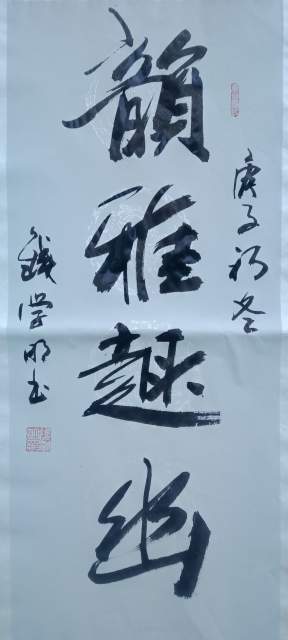 庚子初冬
韻雅趣幽
錢学明书